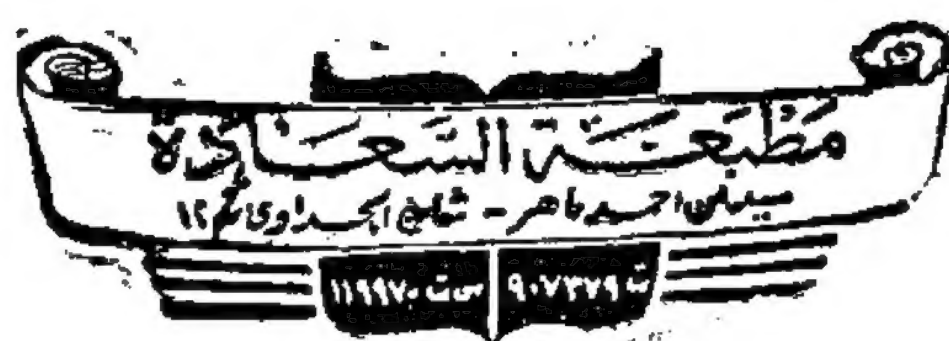 مَطبعَة السَّعَادَة
ميدان احمد ماهر - شارع الجداوى رقم ١٢
ت ٩٠٧٣٧٩ س.ت ١١٩٩٧٠